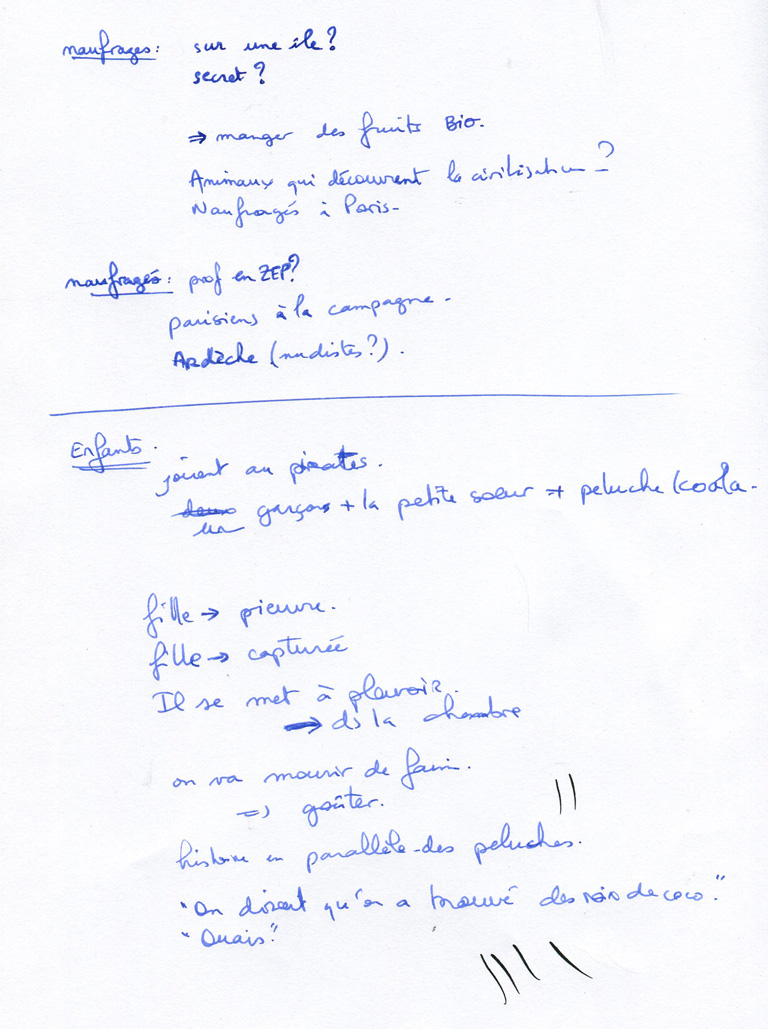 naufrages: sur une île?
secret?
⇒ manger des fruits Bio.
Animaux qui découvrent la civilisation?
Naufragés à Paris-
naufragés: prof en ZEP?
parisiens à la campagne.
Ardèche (nudistes?).
Enfants.
jouent au pirates.
deux garçons + la petite soeur + peluche koala.
un
fille → pieuvre.
fille → capturée
Il se met à pleuvoir.
→ ds la chambre
on va mourir de faim.
=> goûter.
histoire en parallèle-des peluches.
"On disent qu'on a trouvé des noix de coco."
"Ouais"